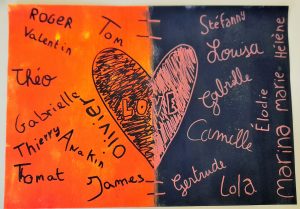 ROGER
Valentin
Tom
Théo
Gabrielle
Olivier
Thierry
Anakin
Thomat
James
LOVE
Stéfanny
Louisa
Gabrielle
Camille
Gertrude
Lola
Élodie
marina
marie-Hélène